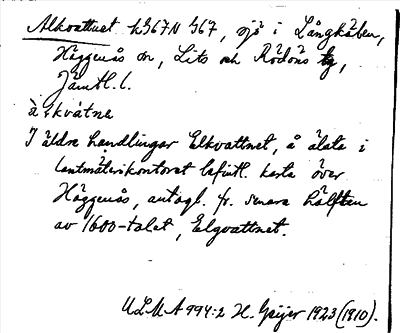 Alkvattnet h367N 367, sjö i Långkälen,
Häggenås sn, Lits och Rödöns tg,
Jämtl. l.
àlkvátnə
I äldre handlingar Elkvattnet, å älsta i
lantmäterikontoret befintl. karta över
Häggenås, antagl. fr. senare hälften
av 1600-talet, Elgvattnet.
ULMA 994:2 H. Geijer 1923 (1910).